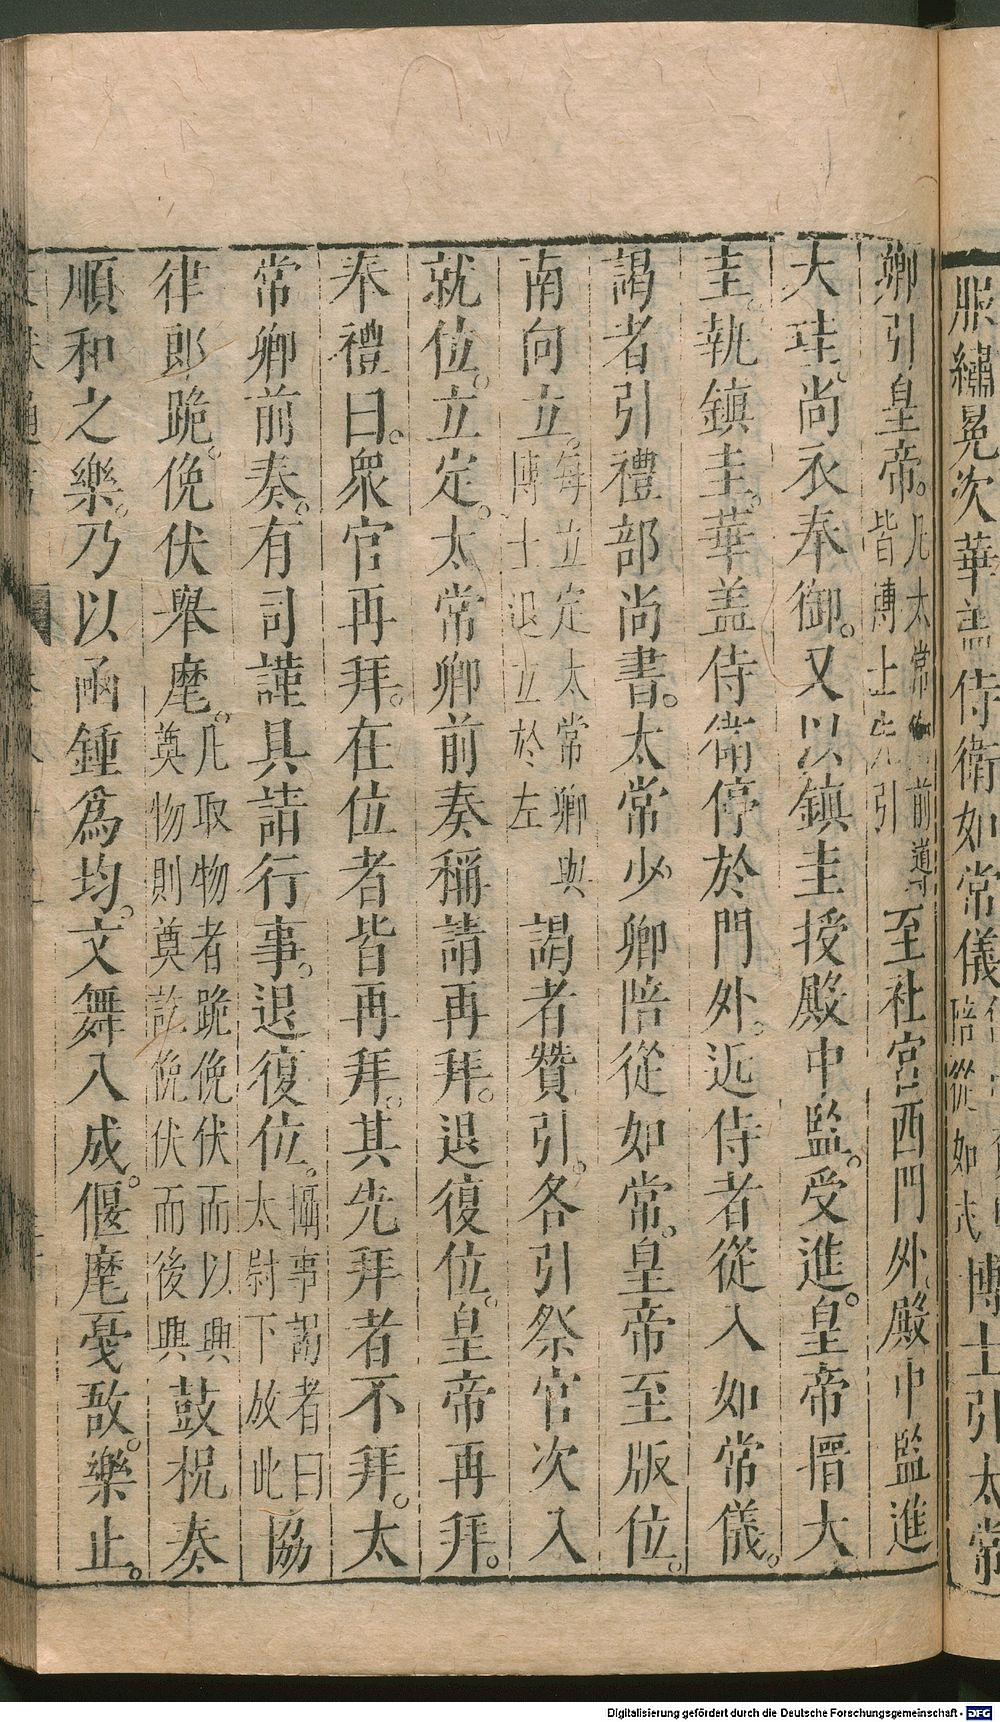 服繡冕次華盖侍衛如常儀陪從如式博士引太常
卿引皇帝。凡太常卿前導皆博士先引至社宮西門外。殿中監進
大珪。尚衣奉御。又以鎮圭授殿中監。受進。皇帝搢大
圭。執鎮圭。華盖侍衛停於門外。近侍者從入如常儀。
謁者引禮部尚書。太常少卿陪從如常。皇帝至版位。
南向立。每立定太常卿與博士退立於左謁者贊引。各引祭官次入
就位。立定。太常卿前奏稱請再拜。退復位。皇帝再拜。
奉禮曰。衆官再拜。在位者皆再拜。其先拜者不拜。太
常卿前奏。有司謹具請行事。退復位。攝事謁者曰太尉下放此協
律郎跪。俛伏舉麾。凡取物者跪俛伏而以興奠物則奠訖俛伏而後興鼓柷奏
順和之樂。乃以函鍾爲均。文舞入成。偃麾戛敔。樂止。
Digitalisierung gefördert durch die Deutsche Forschungsgemeinschaft - DFG